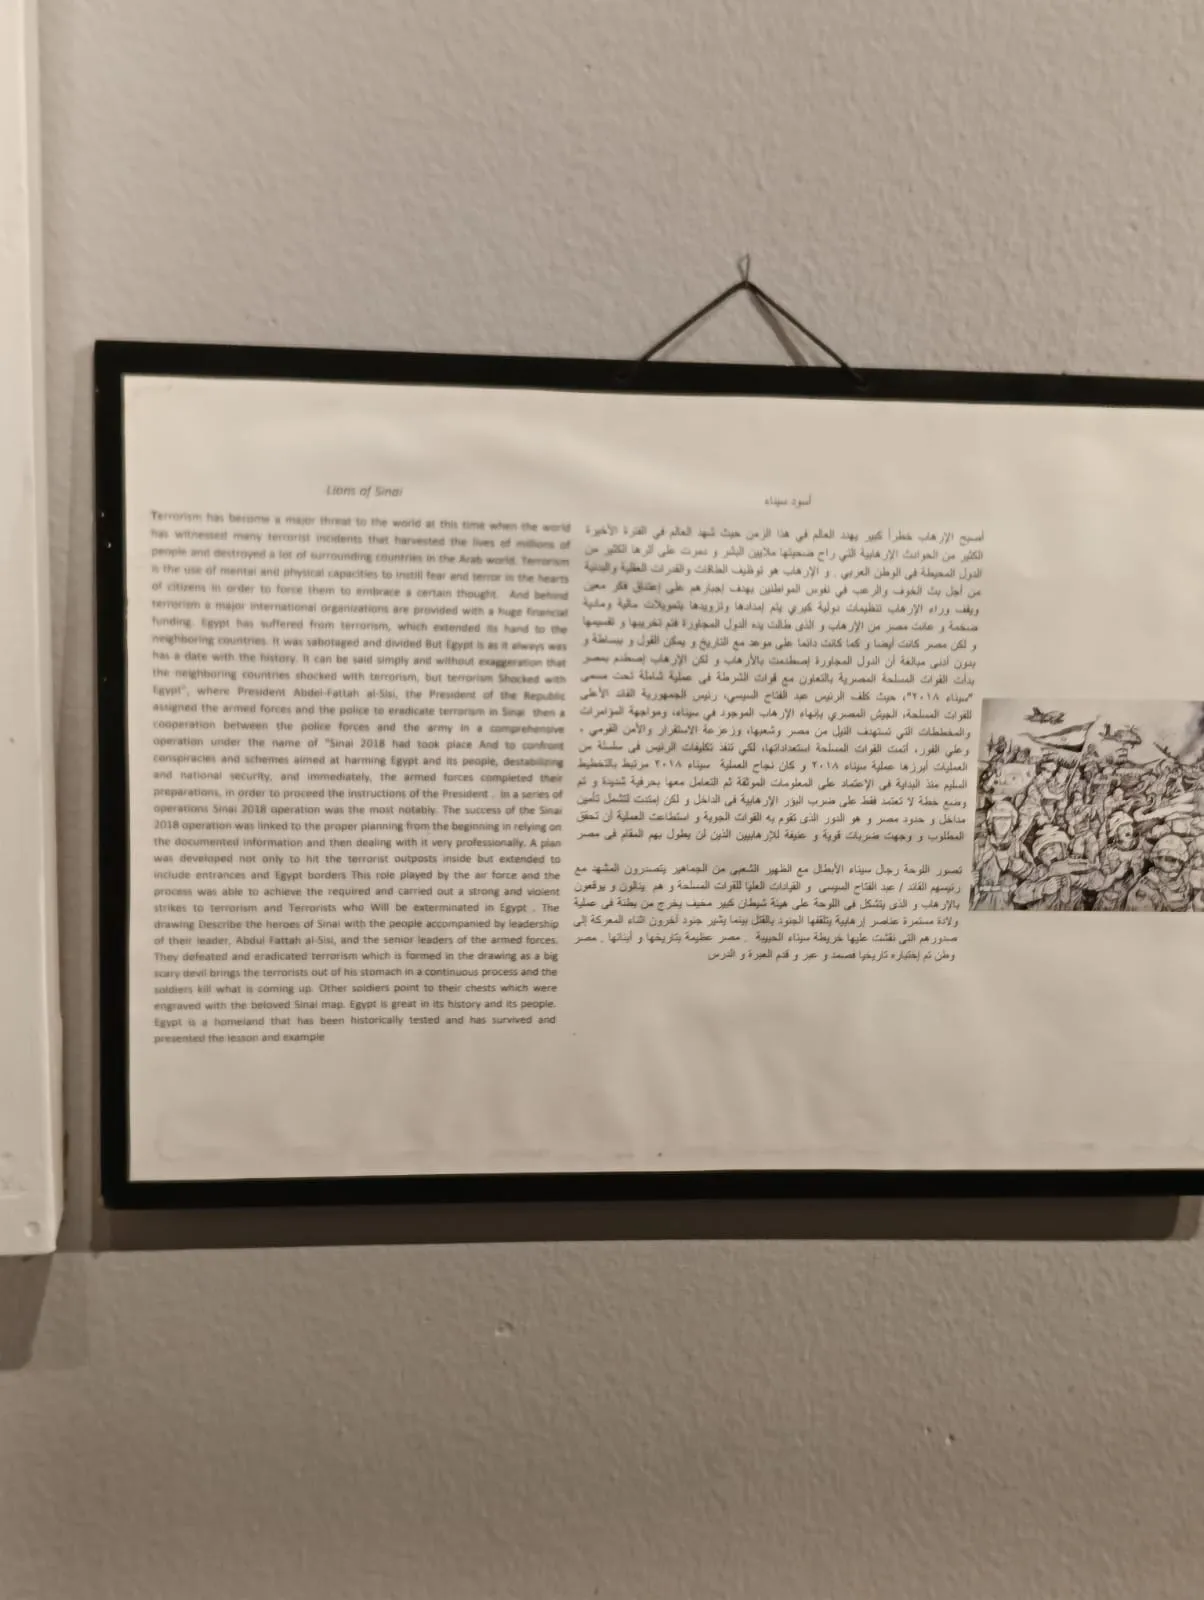 Lions of Sinai
Terrorism has become a major threat to the world at this time when the world
has witnessed many terrorist incidents that harvested the lives of millions of
people and destroyed a lot of surrounding countries in the Arab world. Terrorism
is the use of mental and physical capacities to instill fear and terror in the hearts
of citizens in order to force them to embrace a certain thought. And behind
terrorism a major international organizations are provided with a huge financial
funding. Egypt has suffered from terrorism, which extended its hand to the
neighboring countries. It was sabotaged and divided But Egypt is as it always was
has a date with the history. It can be said simply and without exaggeration that
the neighboring countries shocked with terrorism, but terrorism Shocked with
Egypt", where President Abdel-Fattah al-Sisi, the President of the Republic
assigned the armed forces and the police to eradicate terrorism in Sinai then a
cooperation between the police forces and the army in a comprehensive
operation under the name of "Sinai 2018 had took place And to confront
conspiracies and schemes aimed at harming Egypt and its people, destabilizing
and national security, and immediately, the armed forces completed their
preparations, in order to proceed the instructions of the President . In a series of
operations Sinai 2018 operation was the most notably. The success of the Sinai
2018 operation was linked to the proper planning from the beginning in relying on
the documented information and then dealing with it very professionally. A plan
was developed not only to hit the terrorist outposts inside but extended to
include entrances and Egypt borders This role played by the air force and the
process was able to achieve the required and carried out a strong and violent
strikes to terrorism and Terrorists who Will be exterminated in Egypt . The
drawing Describe the heroes of Sinai with the people accompanied by leadership
of their leader, Abdul Fattah al-Sisi, and the senior leaders of the armed forces.
They defeated and eradicated terrorism which is formed in the drawing as a big
scary devil brings the terrorists out of his stomach in a continuous process and the
soldiers kill what is coming up. Other soldiers point to their chests which were
engraved with the beloved Sinai map. Egypt is great in its history and its people.
Egypt is a homeland that has been historically tested and has survived and
presented the lesson and example
أسود سيناء
أصبح الإرهاب خطراً كبير يهدد العالم في هذا الزمن حيث شهد العالم في الفترة الأخيرة
الكثير من الحوادث الإرهابية التي راح ضحيتها ملايين البشر و دمرت على أثرها الكثير من
الدول المحيطة في الوطن العربي . و الإرهاب هو توظيف الطاقات والقدرات العقلية والبدنية
من أجل بث الخوف والرعب في نفوس المواطنين بهدف إجبارهم على إعتناق فكر معين
ويقف وراء الإرهاب تنظيمات دولية كبري يتم إمدادها وتزويدها بتمويلات مالية ومادية
ضخمة و عانت مصر من الإرهاب و الذى طالت يده الدول المجاورة فتم تخريبها و تقسيمها
و لكن مصر كانت أيضا و كما كانت دائما على موعد مع التاريخ و يمكن القول و ببساطة و
بدون أدنى مبالغة أن الدول المجاورة إصطدمت بالأرهاب و لكن الإرهاب إصطدم بمصر
بدأت القوات المسلحة المصرية بالتعاون مع قوات الشرطة في عملية شاملة تحت مسمى
"سيناء ٢٠١٨"، حيث كلف الرئيس عبد الفتاح السيسي، رئيس الجمهورية القائد الأعلى
للقوات المسلحة، الجيش المصري بإنهاء الإرهاب الموجود في سيناء، ومواجهة المؤامرات
والمخططات التي تستهدف النيل من مصر وشعبها، وزعزعة الاستقرار والأمن القومي .
وعلي الفور، أتمت القوات المسلحة استعداداتها، لكي تنفذ تكليفات الرئيس فى سلسلة من
العمليات أبرزها عملية سيناء ٢٠١٨ و كان نجاح العملية سيناء ٢٠١٨ مرتبط بالتخطيط
السليم منذ البداية فى الإعتماد على المعلومات الموثقة ثم التعامل معها بحرفية شديدة و تم
وضع خطة لا تعتمد فقط على ضرب البؤر الإرهابية فى الداخل و لكن إمتدت لتشمل تأمين
مداخل و حدود مصر و هو الدور الذى تقوم به القوات الجوية و استطاعت العملية أن تحقق
المطلوب و وجهت ضربات قوية و عنيفة للإرهابيين الذين لن يطول بهم المقام فى مصر
تصور اللوحة رجال سيناء الأبطال مع الظهير الشعبى من الجماهير يتصدرون المشهد مع
رئيسهم القائد / عبد الفتاح السيسى و القيادات العليا للقوات المسلحة و هم ينالون و يوقعون
بالإرهاب و الذى يتشكل فى اللوحة على هيئة شيطان كبير مخيف يخرج من بطنة فى عملية
ولادة مستمرة عناصر إرهابية يتلقفها الجنود بالقتل بينما يشير جنود آخرون اثناء المعركة إلى
صدورهم التى نقشت عليها خريطة سيناء الحبيبة . مصر عظيمة بتاريخها و أبنائها . مصر
وطن تم إختباره تاريخيا فصمد و عبر و قدم العبرة و الدرس